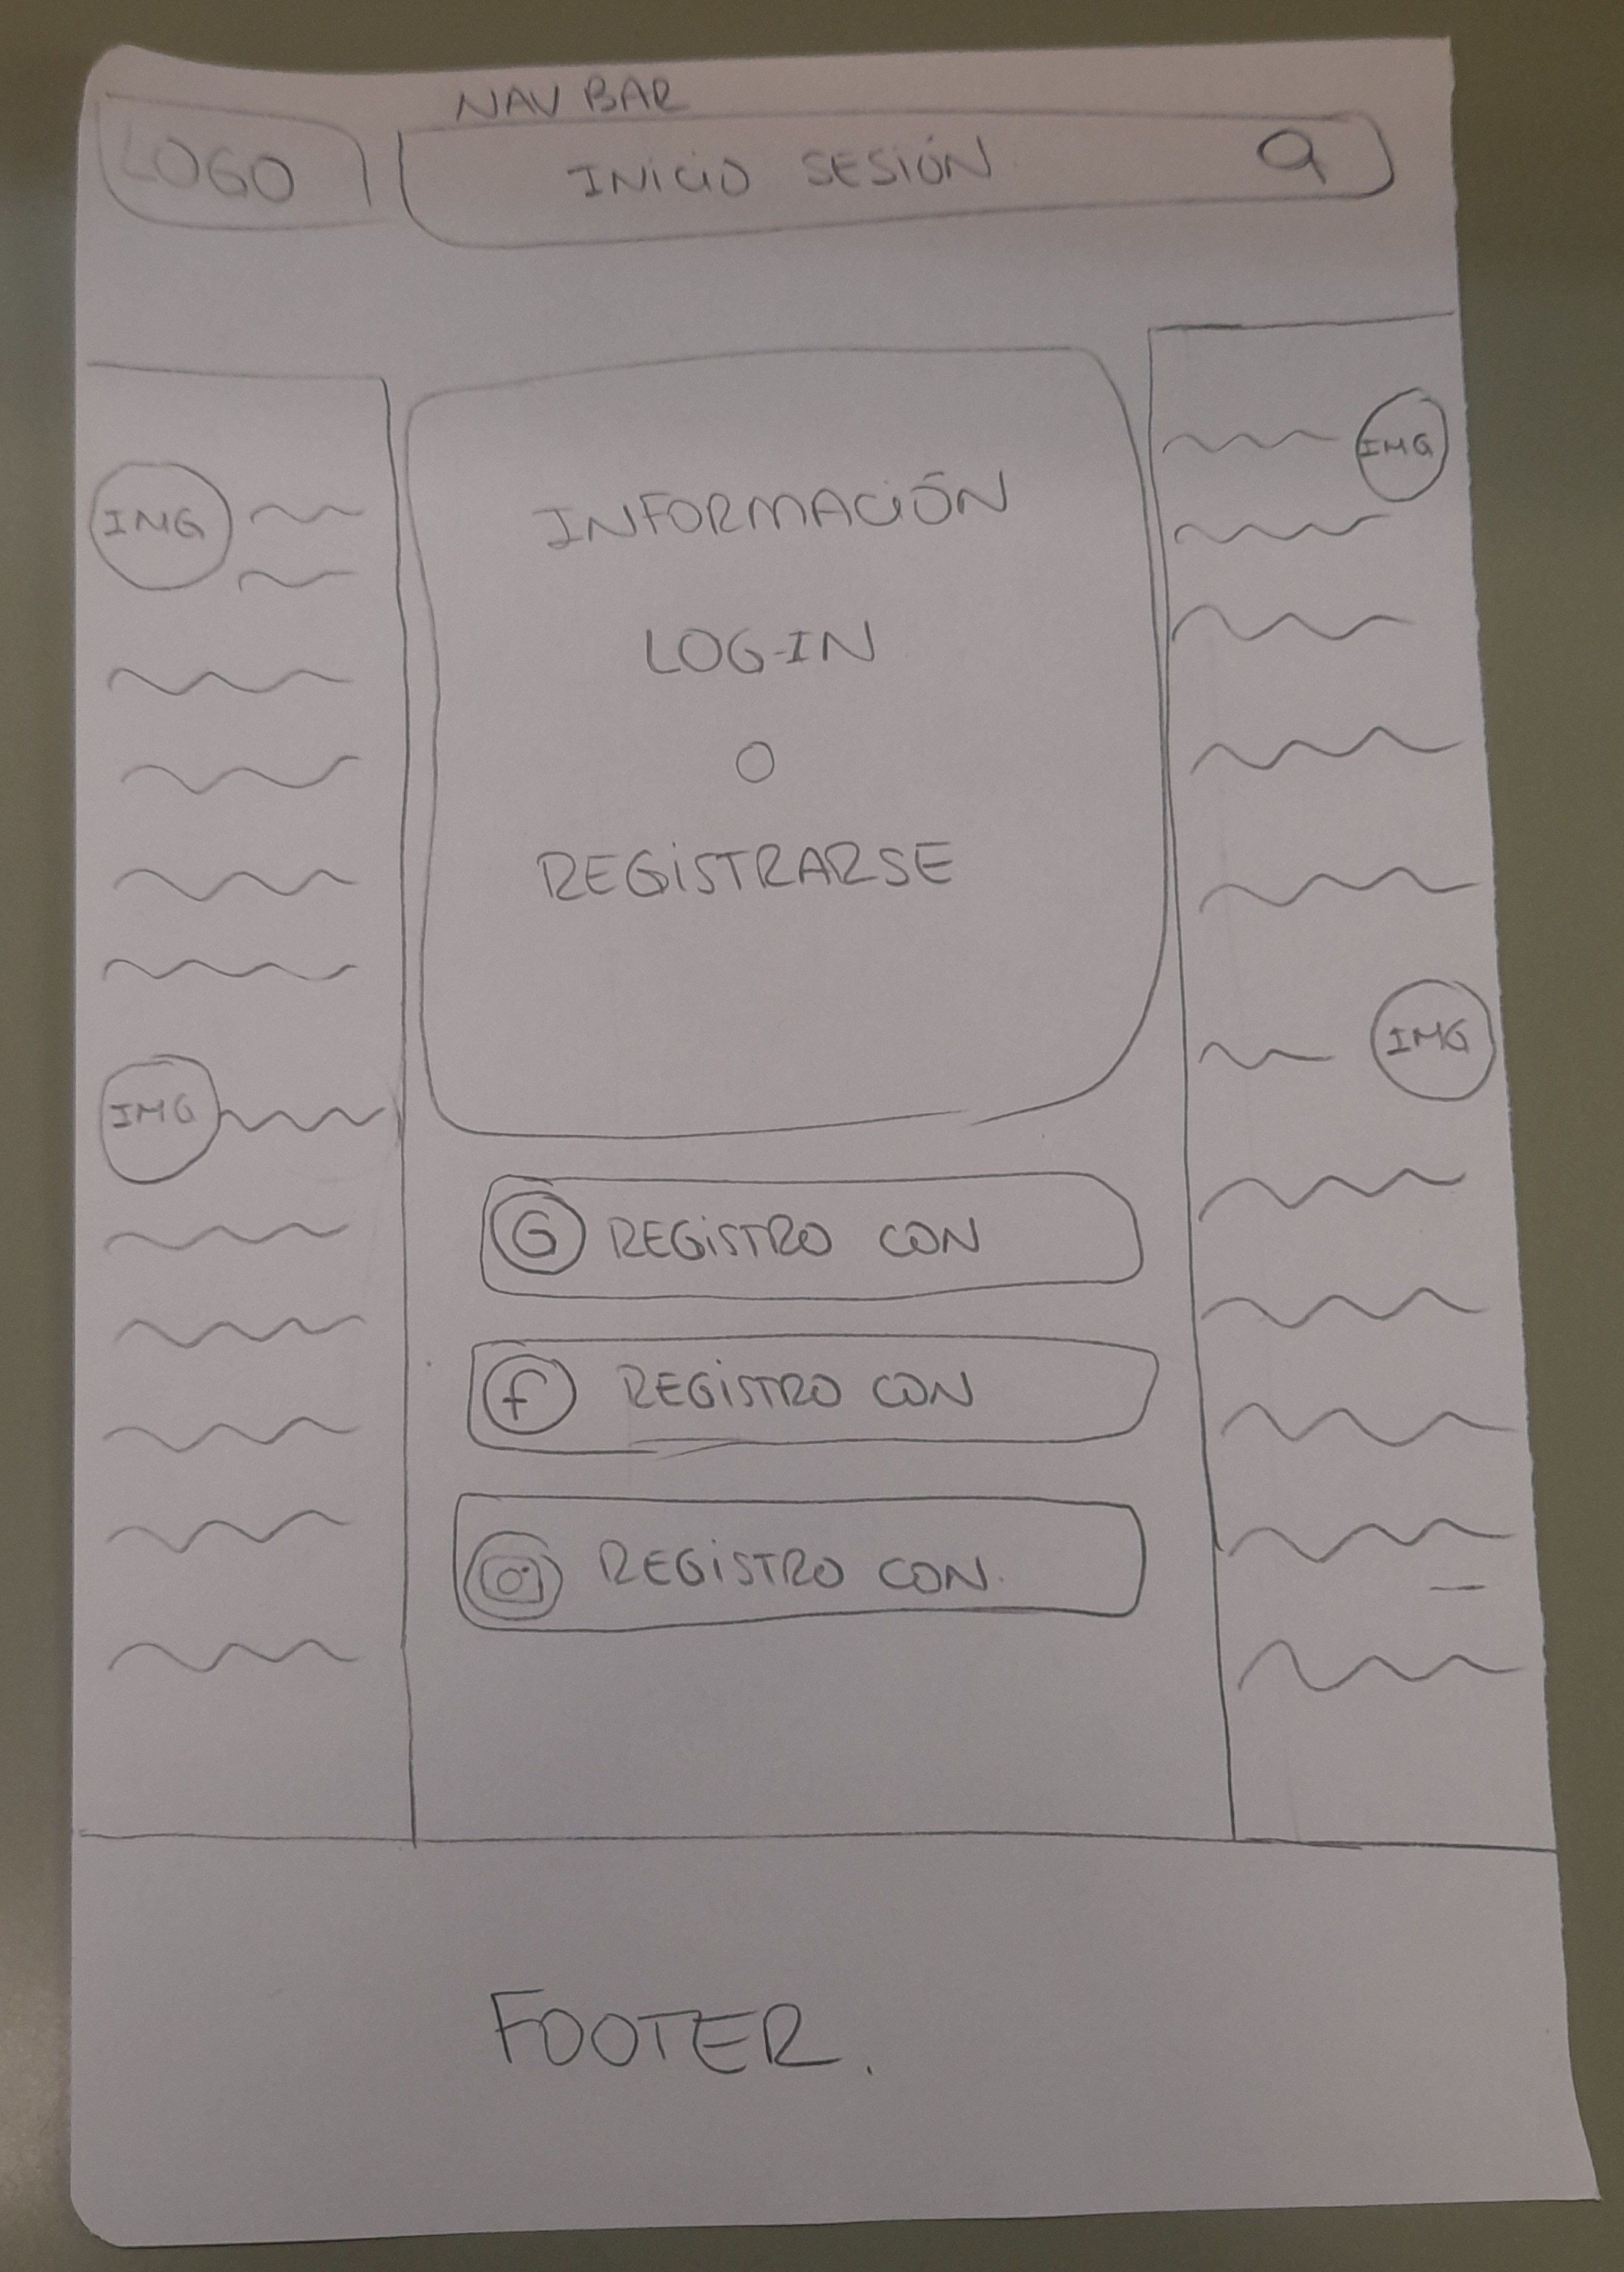 NAV BAR
LOGO
INICIO SESIÓN
INFORMACIÓN
LOG-IN
O
REGISTRARSE
IMG
IMG
IMG
IMG
G REGISTRO CON
f REGISTRO CON
REGISTRO CON.
FOOTER.